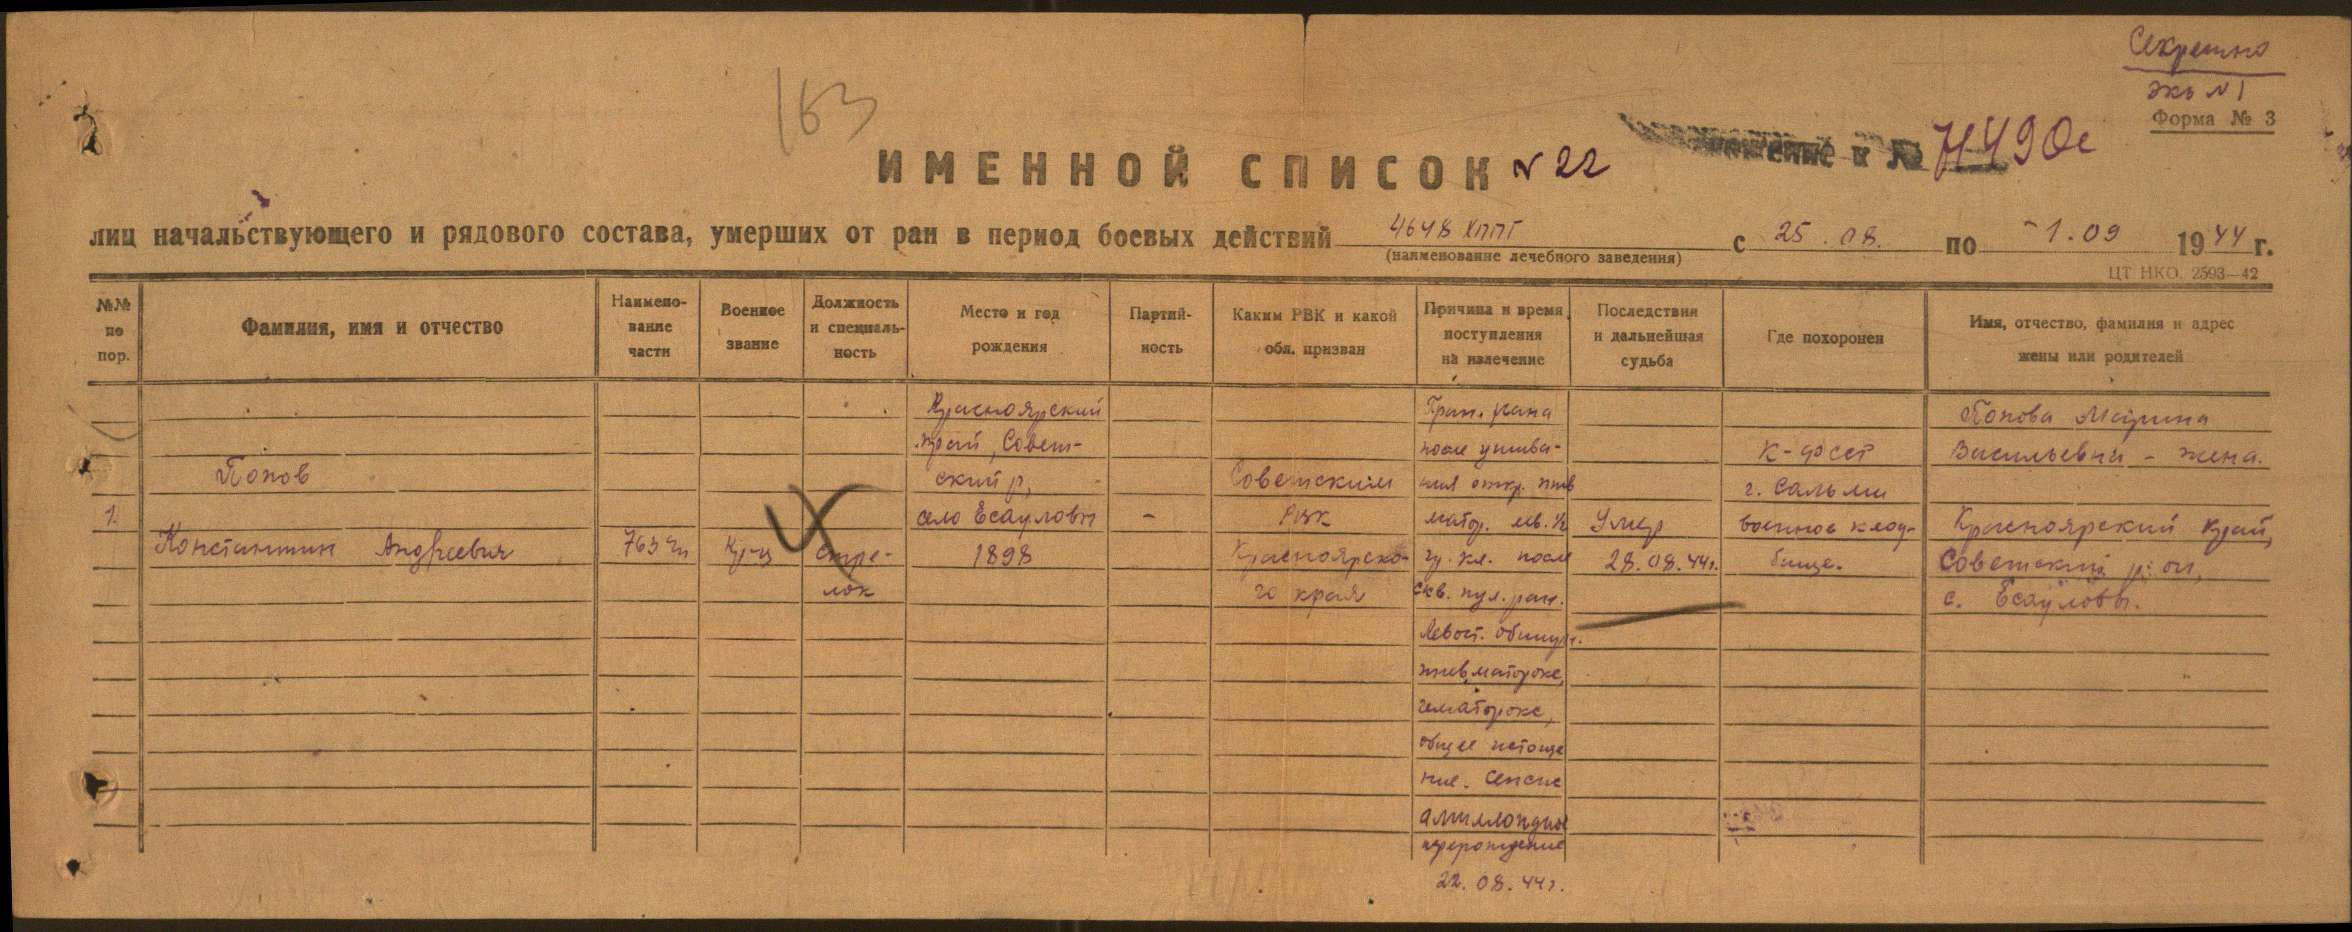 Секретно
экз N 1
Форма № 3
163
ение к № 71490с
ИМЕННОЙ СПИСОК N 22
лиц начальствующего и рядового состава, умерших от ран в период боевых действий 4648 ХППГ с 25.08. по 1.09 1944 г.
(наименование лечебного заведения)
ЦТ НКО. 2593—42
№№ по пор.
Фамилия, имя и отчество
Наимено-
вание
части
Военное
звание
Должность
и специаль-
ность
Место и год
рождения
Партий-
ность
Каким РВК и какой
обл. призван
Причина и время
поступления
на излечение
Последствия
и дальнейшая
судьба
Где похоронен
Имя, отчество, фамилия и адрес
жены или родителей
1.
Попов
Константин Андреевич
763
Кр-ц
стре-
лок
Красноярский
край, Совет-
ский р,
село Есауловы
1898
-
Советским
РВК
Красноярско-
го края
Гран. рана
после ушива-
ния откр. пнев
матор. лев. 1/2
гр. кл. после
скв. пул. ран.
Левост. обширн.
пневматоракс,
гематоракс,
общее истоще
ние. Сепсис
амиллоидное
перерождение
22.08.44г.
Умер
28.08.44г.
К-ФССР
г. Сальми
военное клад-
бище.
Попова Марина
Васильевна - жена.
Красноярский край,
Советский р-он,
с. Есауловы.